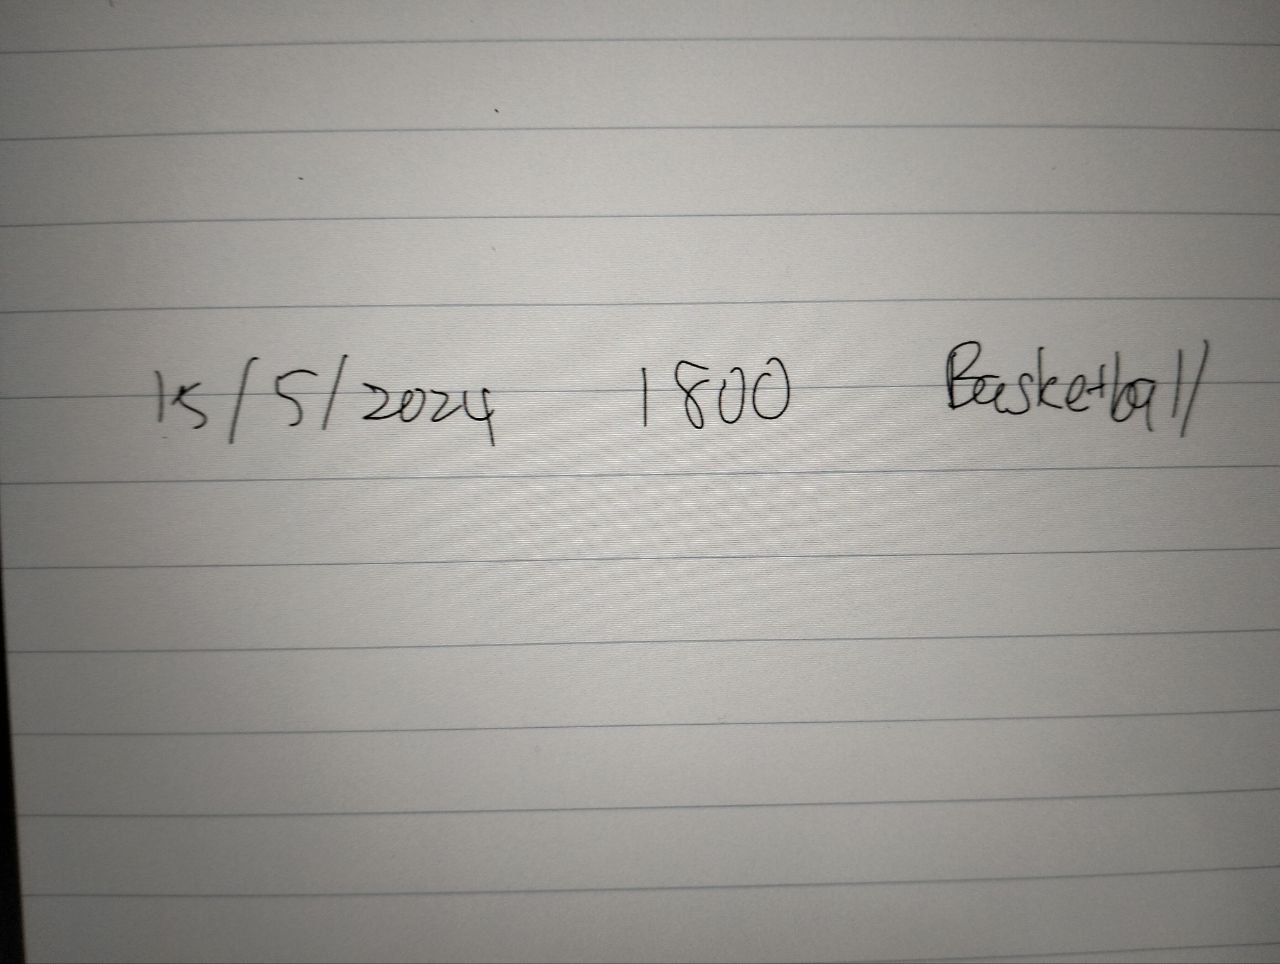 15/5/2024 1800 Basketball